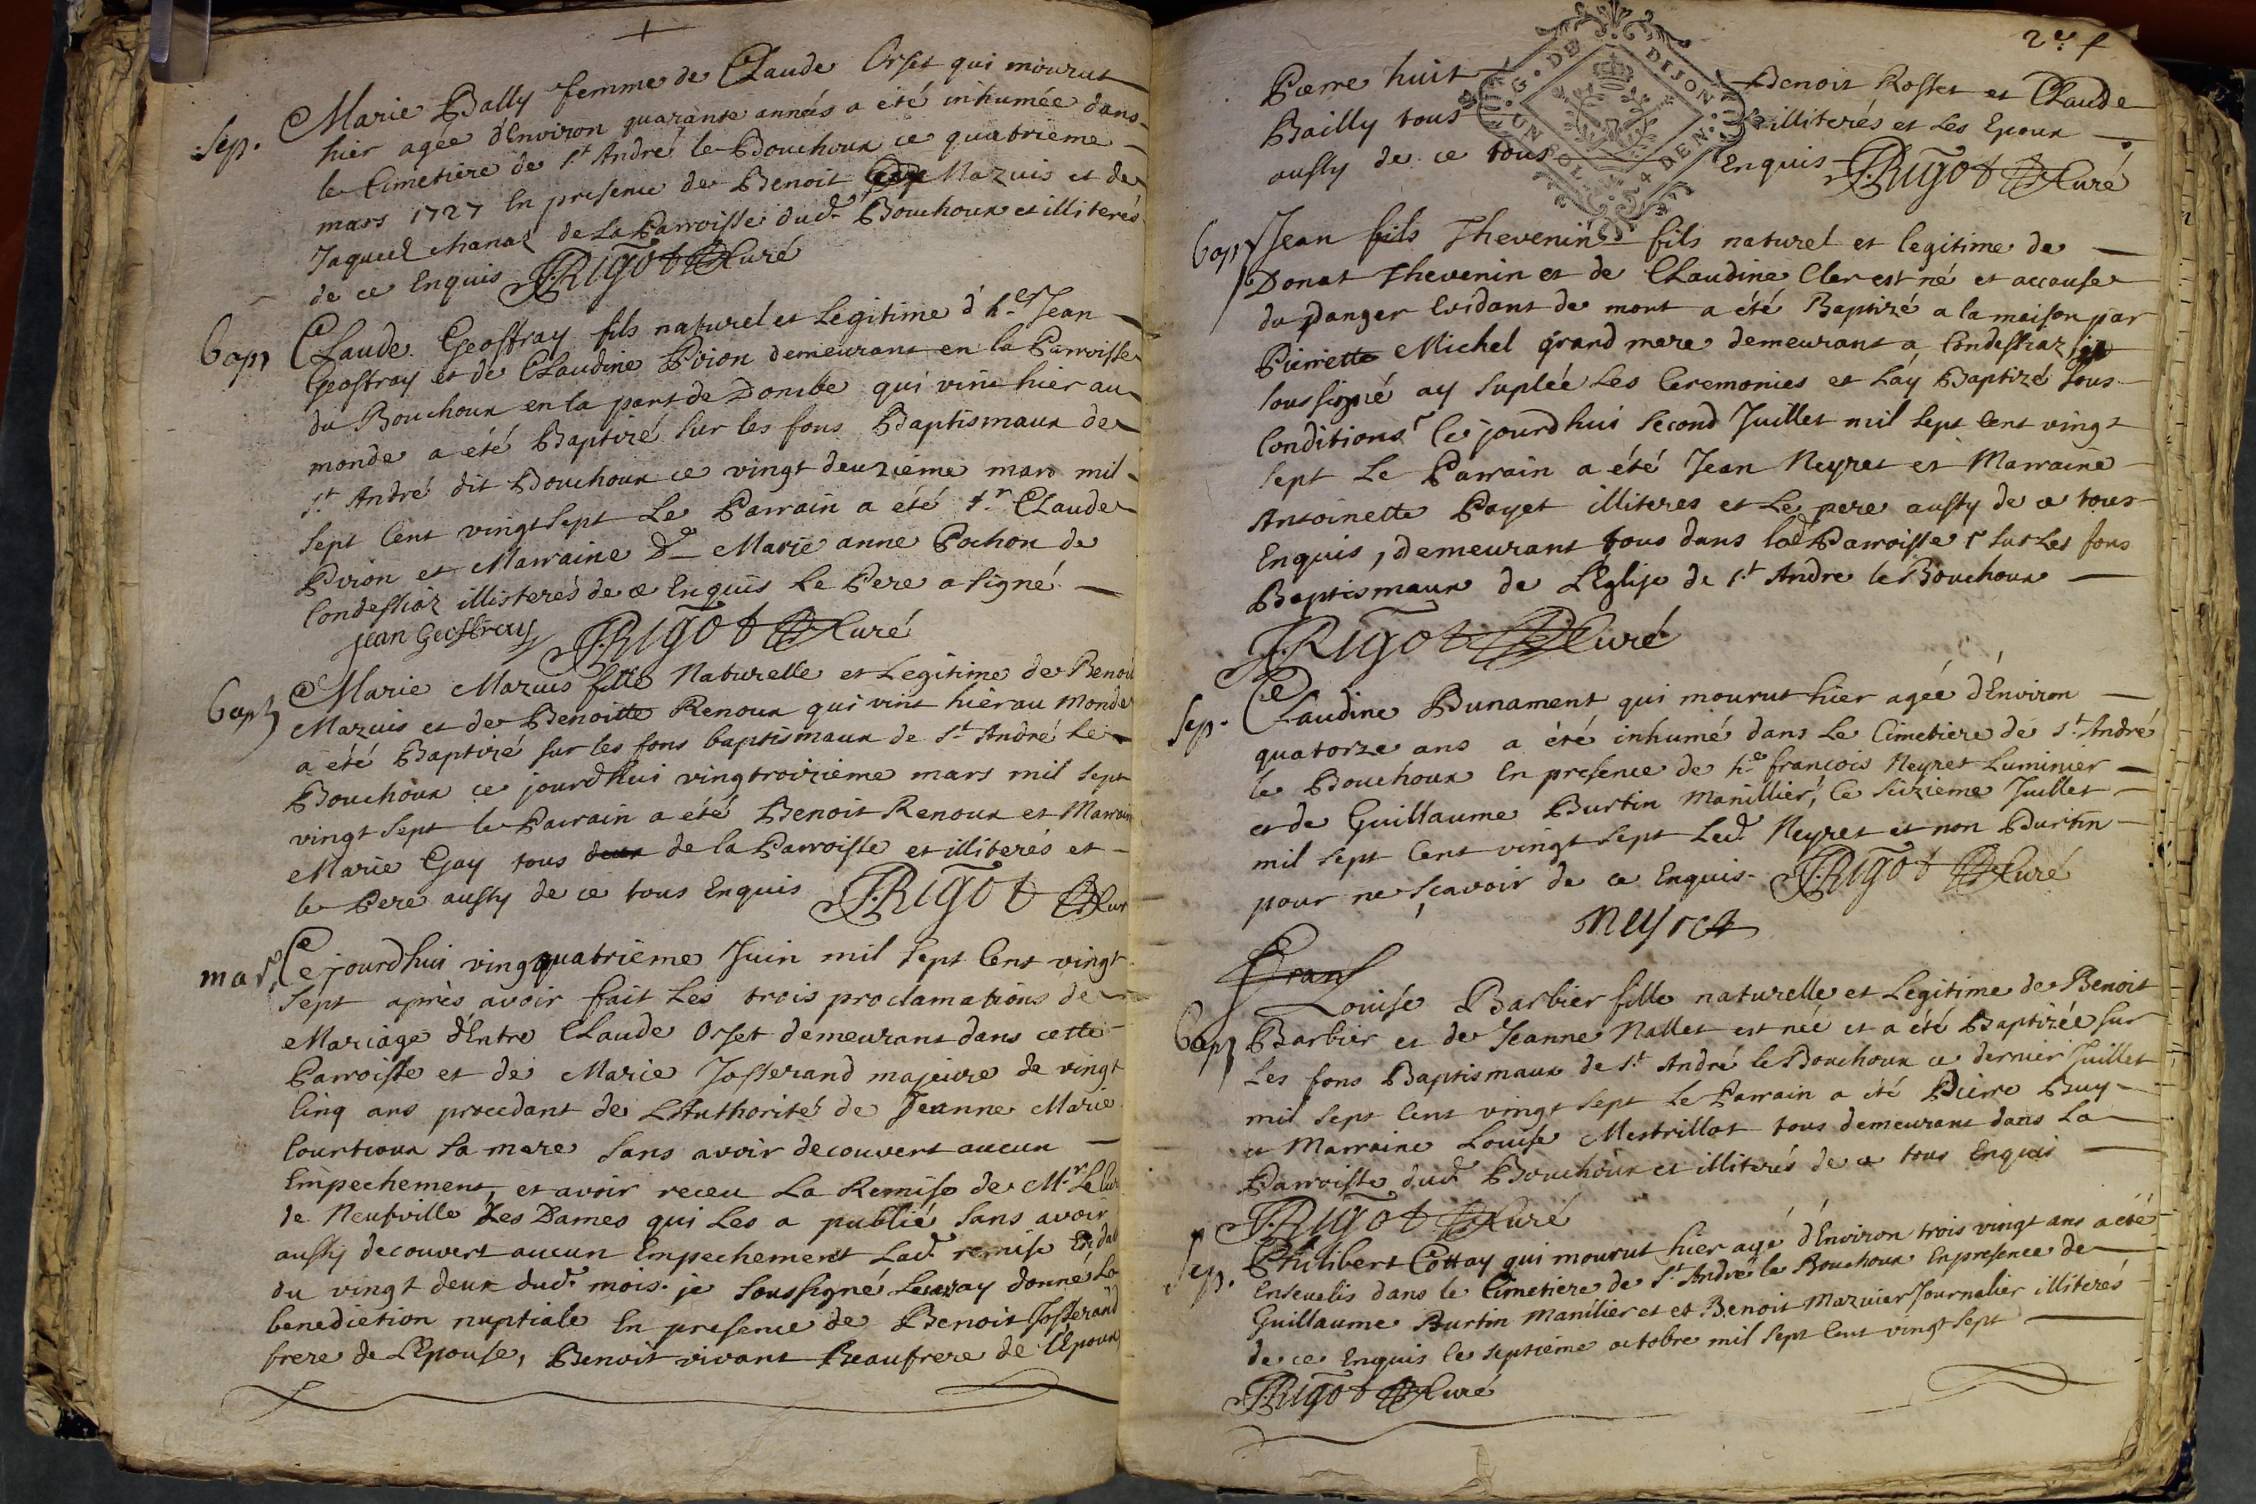 Sep. Marie Bally femme de Claude Orset qui mourut
hier agée d'Environ quarante années a été inhumée dans
le Cimetiere de St André le Bouchoux ce quatrieme
mars 1727 En presence de Benoit Mazuis et de
Jaques chanal de La Parroisse dud. Bouchoux et illiterés
de ce Enquis JRIGOT Curé
bap Claude Geoffray fils naturel et Legitime d'h.e Jean
Geoffray et de Claudine Pirion demeurant en la Parroisse
du Bouchoux en la part de Dombe qui vint hier au
monde a été Baptizé sur les fons Baptismaux de
St André dit Bouchoux ce vingt deuzieme mars mil
sept Cent vingt sept Le Parrain a été Sr Claude
Pirion et Marraine D. Marie anne Pochon de
Condessiaz illisterés de ce Enquis Le Pere a signé
jean Geoffray JRIGOT Curé
bapt Marie Mazuis fille Naturelle et Legitime de Benoit
Mazuis et de Benoitte Renoux qui vint hier au Monde
a été Baptizé sur les fons baptismaux de St André Le
Bouchoux ce jourd'hui vingtroizieme mars mil sept
vingt sept le Parrain a été Benoit Renoux et Marraine
Marie Gay tous deux de la Parroisse et illiterés et
le Pere aussy de ce tous Enquis JRIGOT Cur
mar. Ce jourd'hui vingquatrieme Juin mil sept Cent vingt
sept après avoir fait Les trois proclamations de
Mariage d'Entre Claude Orset demeurant dans cette
Parroisse et de Marie Josserand majeure de vingt
Cinq ans procedant de L'Authorité de Jeanne Marie
Courtioux sa mere sans avoir decouvert aucun
Empechement, et avoir receu La Remise de Mr Le Cur
de Neufville Les Dames qui Les a publié sans avoir
aussy decouvert aucun Empechement Lad. remise En dat
du vingt deux dud. mois. je soussigné Leur ay donné La
benediction nuptiale En presence de Benoit Josserand
frere de L'Epouse, Benoit vivant Beaufrere de l'Epoux
2e f
G. DE DIJON
UN SOL. 4 DEN.
Pierre huit Benoit Rosset et Claude
Bailly tous illiterés et Les Epoux
aussy de ce tous Enquis JRIGOT Curé
bapt Jean fils Thevenin fils naturel et legitime de
Donat Thevenin et de Claudine Cler est né et accause
du Danger Evidant de mort a été Baptizé a la maison par
Pierrette Michel grand mere demeurant a Condessiaz
soussigné ay suplée Les Ceremonies et L'ay Baptizé sous
Conditions Ce jourd'hui second Juillet mil sept Cent vingt
sept Le Parrain a été Jean Neyret et Marraine
Antoinette Payet illiteres et Le pere aussy de ce tous
Enquis, demeurant tous dans lad. Parroisse sur Les fons
Baptismaux de L'Eglise de St Andre le Bouchoux
JRIGOT Curé
Sep. Claudine Bunament qui mourut hier agée d'Environ
quatorze ans a été inhumé dans Le Cimetiere de St André
le Bouchoux En presence de h.e francois Neyret Luminier
et de Guillaume Burtin Manillier, Ce seizieme Juillet
mil sept Cent vingt sept Led. Neyret et non Burtin
pour ne sçavoir de ce Enquis. JRIGOT Curé
neyret
Frans
Louise Barbier fille naturelle et Legitime de Benoit
bapt Barbier et de Jeanne Nallet est née et a été Baptizée sur
Les fons Baptismaux de St André le Bouchoux ce dernier Juillet
mil sept Cent vingt sept Le Parrain a été Pierre Buy
et Marraine Louise Mestrillot tous demeurant dans La
Parroisse dud. Bouchoux et illiterés de ce tous Enquis
JRIGOT Curé
Sep. Philibert Cottay qui mourut hier agé d'Environ trois vingt ans a été
Ensevelis dans le Cimetiere de St André le Bouchoux En presence de
Guillaume Burtin Manilier et et Benoit Mazuier Journalier illiterés
de ce Enquis Ce septieme octobre mil sept Cent vingt sept
JRIGOT Curé